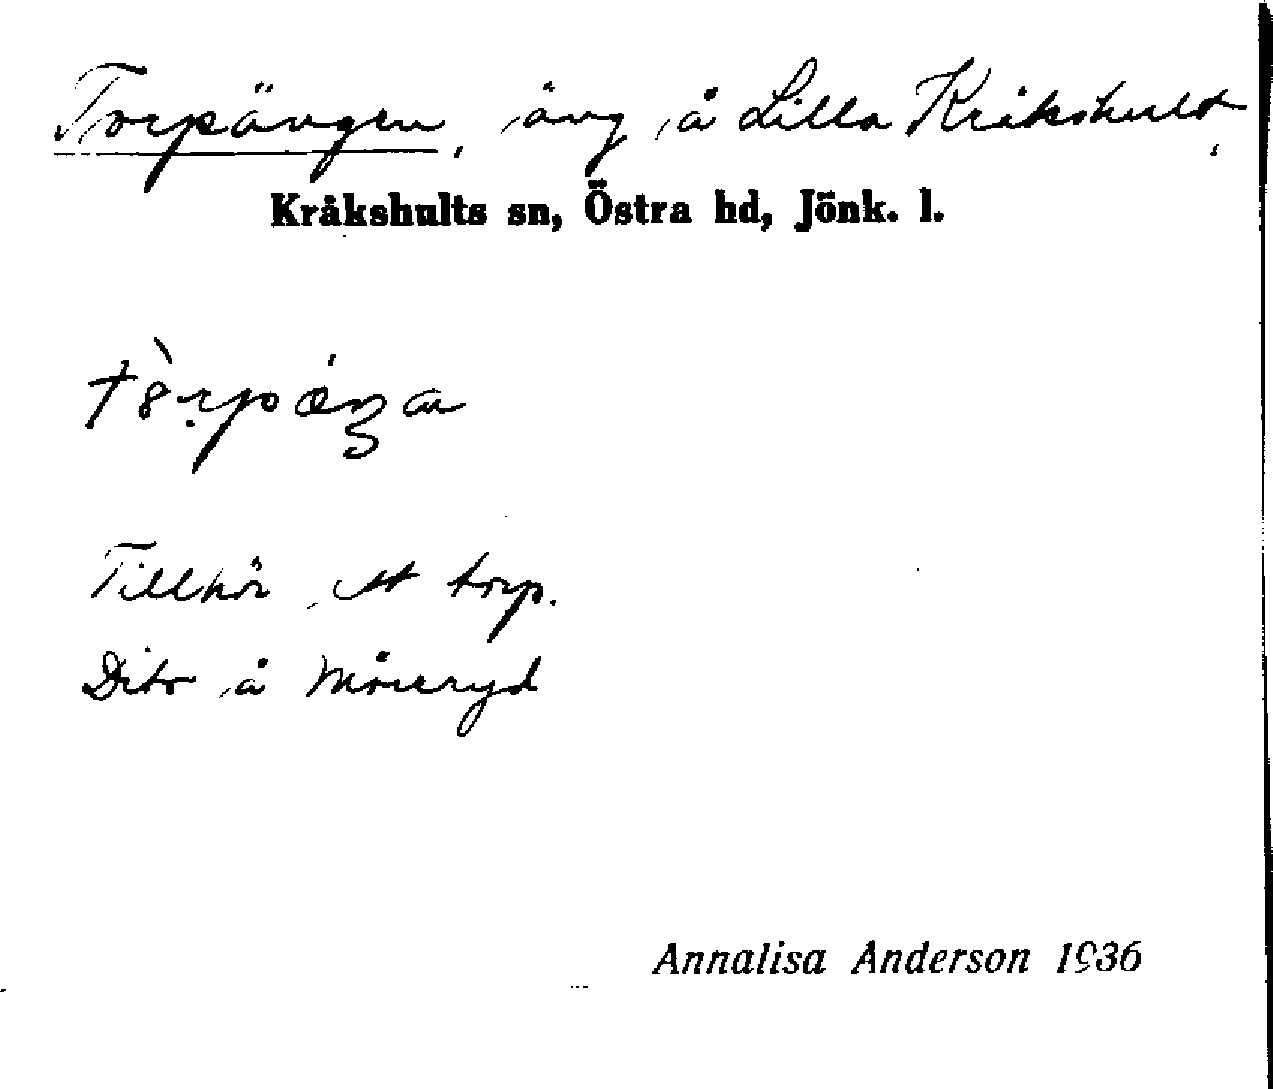 Torpängen, äng å Lilla Kråkshult,
Kråkshults sn, Östra hd, Jönk. l.
Tillhör ett torp.
Dito å Måseryd
Annalisa Anderson 1936